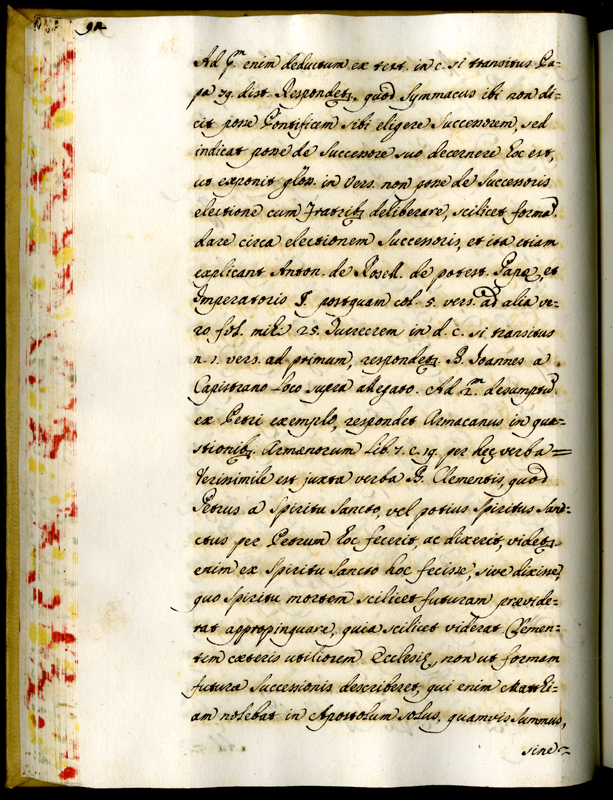 92
Ad p.m enim deductum ex text. in c. si transitus Pa-
pa 79. dist. Respondetr., quod Symmacus ibi non di-
cit posse Pontificem sibi eligere Successorem, sed
indicat posse de Successore suo decernere hoc est,
ut exponit glos. in Vers. non posse de Successoris
electione cum Fratrib; deliberare, scilicet formā
dare circa electionem Successoris, et ita etiam
explicant Anton. de Rosell. de potest. Papæ, et
Imperatoris P. postquam col. 5. vers. ad alia ve-
ro fol. mihi 25. Turrecrem in d. c. si transitus
n. 1. vers. ad primum, respondetr. B. Joannes a
Capistrano loco supra allegato. Ad 2.m desumptū
ex Petri exemplo, respondet Armacanus in quæ-
stionib; Armenorum lib. 7. c. 19. per hec verba =
Verisimile est juxta verba B. Clementis, quod
Petrus a Spiritu Sancto, vel potius Spiritus San-
ctus per Petrum hoc fecerit, ac dixerit, videtr.
enim ex Spiritu Sancto hoc fecisse, sive dixisse,
quo Spiritu mortem scilicet futuram prævide-
rat appropinquare, quia scilicet viderat Clemen-
tem cæteris utiliorem Ecclesiæ, non ut formam
futuræ Successionis describeret, qui enim Matthi-
am nolebat in Apostolum solus, quamvis Summus,
sine